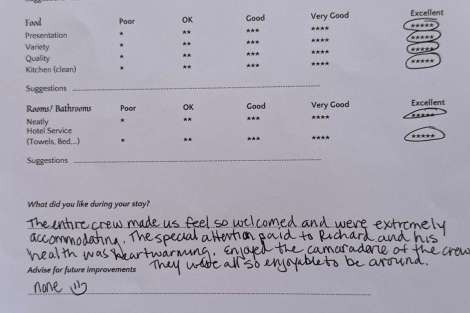 Food Poor OK Good Very Good Excellent
Presentation * ** *** **** *****
Variety * ** *** **** *****
Quality * ** *** **** *****
Kitchen (clean) * ** *** **** *****
Suggestions
Rooms/ Bathrooms Poor OK Good Very Good Excellent
Neatly * ** *** **** *****
Hotel Service
(Towels, Bed,..) * ** *** **** *****
Suggestions
What did you like during your stay?
The entire crew made us feel so welcomed and were extremely
accommodating. The special attention paid to Richard and his
health was heartwarming. Enjoyed the camaraderie of the crew
They were all so enjoyable to be around.
Advise for future improvements
none